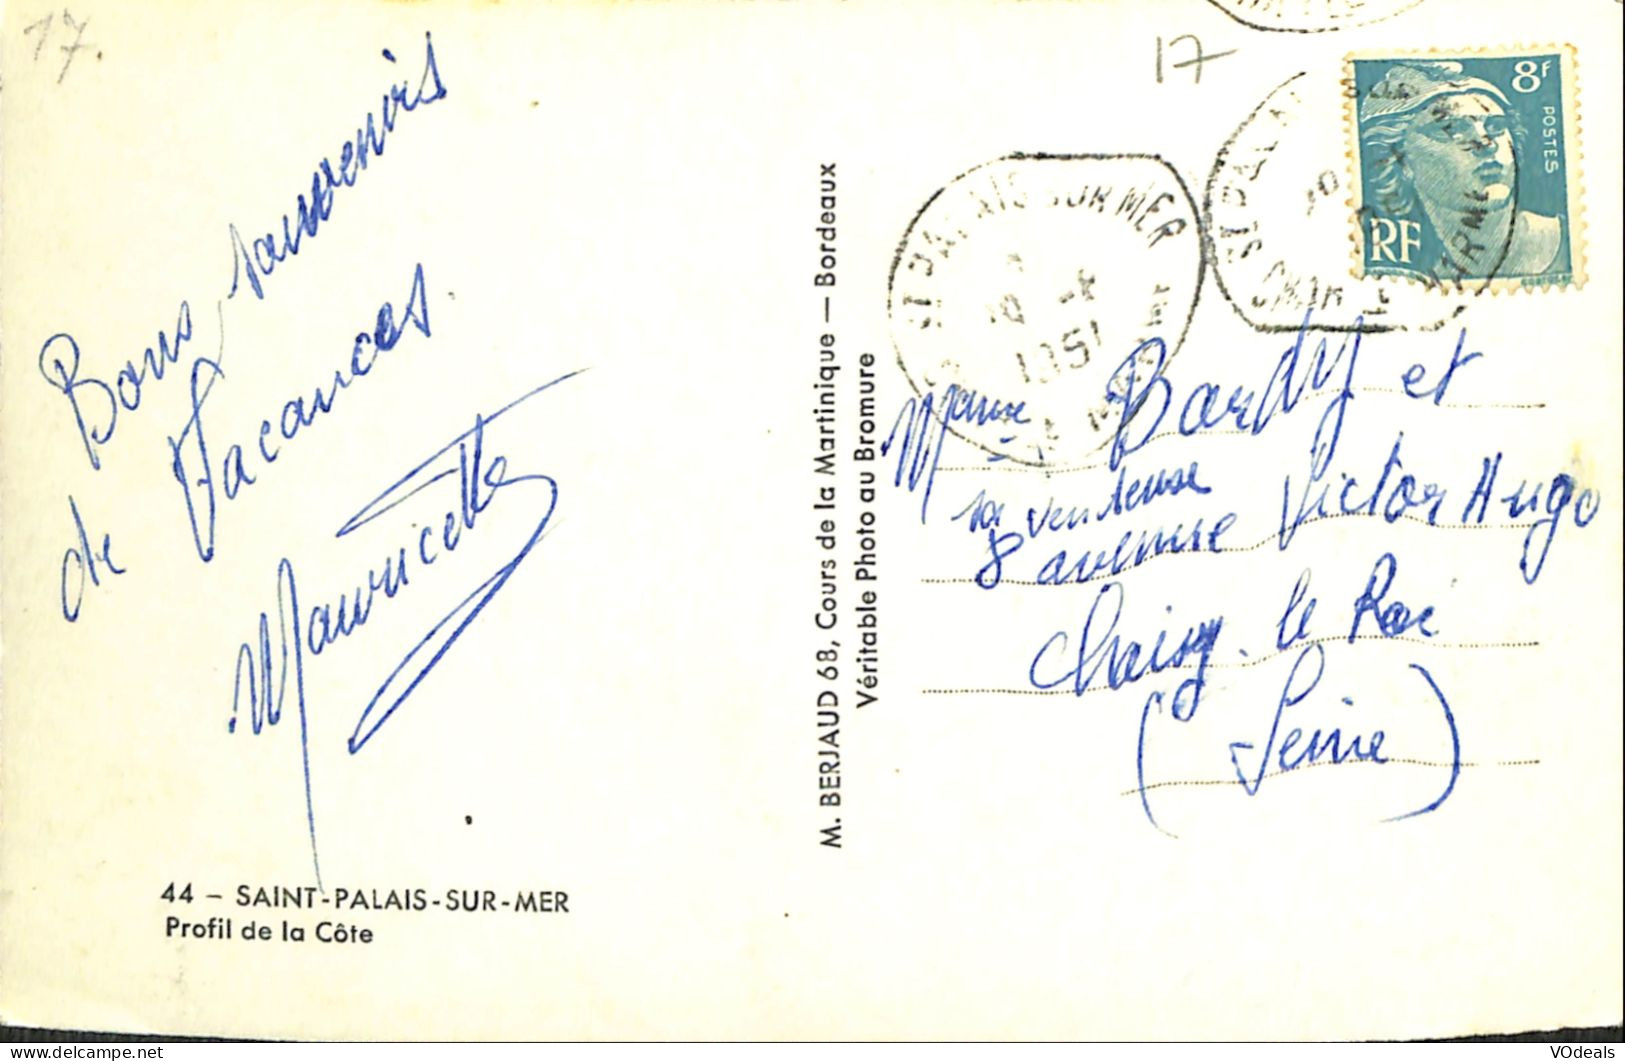 17.
17
Bons souvenirs
de Vacances.
Mauricette
44 – SAINT-PALAIS-SUR-MER
Profil de la Côte
M. BERJAUD 68, Cours de la Martinique — Bordeaux
Véritable Photo au Bromure
ST PALAIS SUR MER
1951
8F
POSTES
RF
Bardy et
sa vendeuse
8 avenue Victor Hugo
Choisy-le Roi
(Seine)
VOdeals